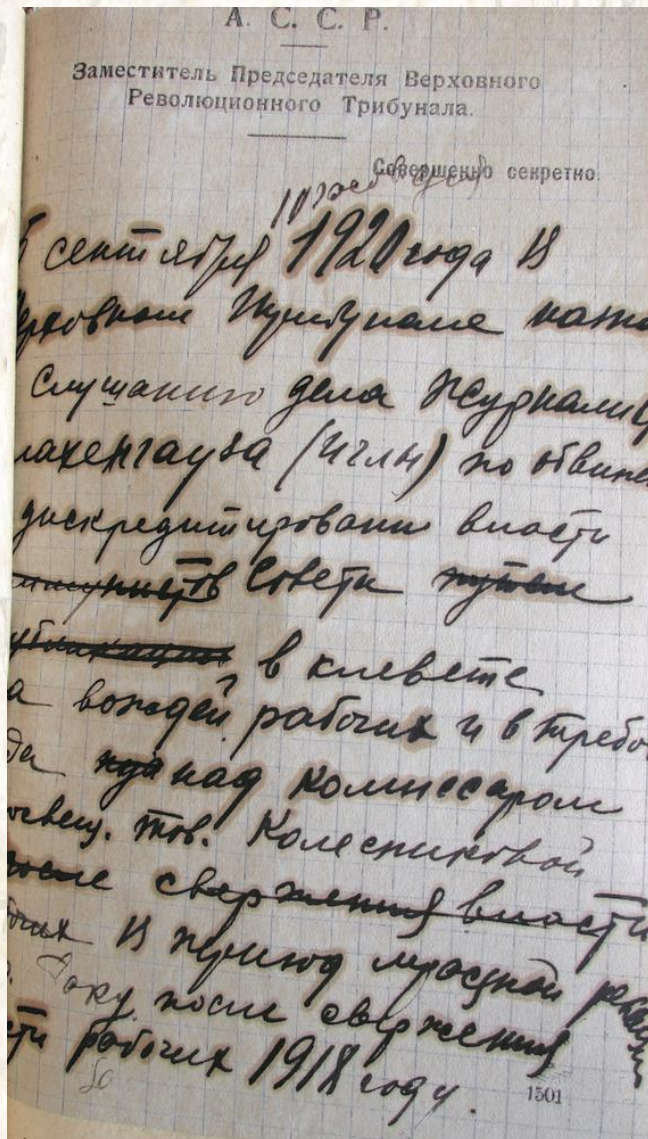 А. С. С. Р.
Заместитель Председателя Верховного
Революционного Трибунала.
Совершенно секретно.
сентября 1920 года в
ерховном Трибунале назна
слушанию дела журналис
лахенгауза (Иглы) по обвине
дискредитировании власти
Совета путем
в клевете
а вождей рабочих и в требо
да над комиссаром
освещ. тов. Колесниковой
после свержения власти
очих в период мрачной реакции
Баку после свержения
сти рабочих 1918 году.
1501